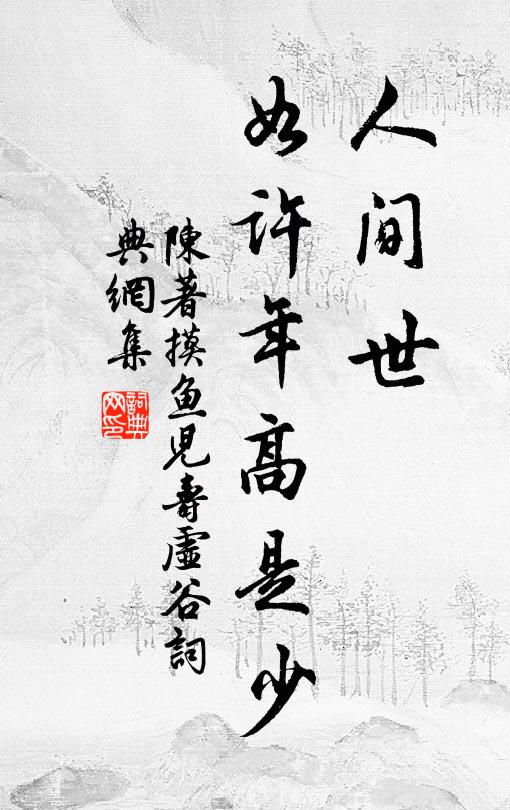 人间世
如许年高是少
陳著摸鱼児壽虛谷詞
典網集
詞典网印